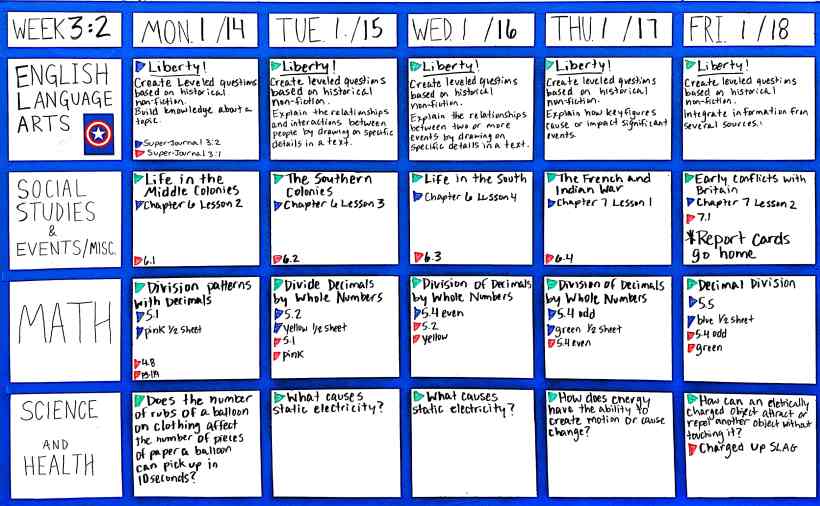 WEEK 3:2
MON. 1/14
TUE. 1/15
WED. 1/16
THU. 1/17
FRI. 1/18
ENGLISH
LANGUAGE
ARTS
Liberty!
Create Leveled questions
based on historical
non-fiction.
Build knowledge about a
topic
Super-Journal 3:2
Super-Journal 3:1
Liberty!
Create leveled questions
based on historical
non-fiction.
Explain the relationships
and interactions between
people by drawing on specific
details in a text.
Liberty!
Create leveled questions
based on historical
non-fiction.
Explain the relationships
between two or more
events by drawing on
specific details in a text.
Liberty!
Create leveled questions
based on historical
non-fiction.
Explain how key figures
cause or impact significant
events
Liberty!
Create leveled questions
based on historical
non-fiction.
Integrate information from
several sources.
SOCIAL
STUDIES
&
EVENTS/MISC.
Life in the
Middle Colonies
Chapter 6 Lesson 2
6.1
The Southern
Colonies
Chapter 6 Lesson 3
6.2
Life in the South
Chapter 6 Lesson 4
6.3
The French and
Indian War
Chapter 7 Lesson 1
6.4
Early conflicts with
Britain
Chapter 7 Lesson 2
7.1
*Report Cards
go home
MATH
Division patterns
with Decimals
5.1
pink 1/2 sheet
4.8
Divide Decimals
by Whole Numbers
5.2
Yellow 1/2 sheet
5.1
pink
Division of Decimals
by Whole Numbers
5.4 even
5.2
yellow
Division of Decimals
by Whole Numbers
5.4 odd
green 1/2 sheet
5.4 even
Decimal Division
5.5
blue 1/2 sheet
5.4 odd
green
SCIENCE
AND
HEALTH
Does the number
of rubs of a balloon
on clothing affect
the number of pieces
of paper a balloon
can pick up in
10 seconds?
What causes
static electricity?
What causes
static electricity?
How does energy
have the ability to
create motion or cause
change?
How can an eletrically
charged object attract or
repel another object without
touching it?
Charged Up SLAG